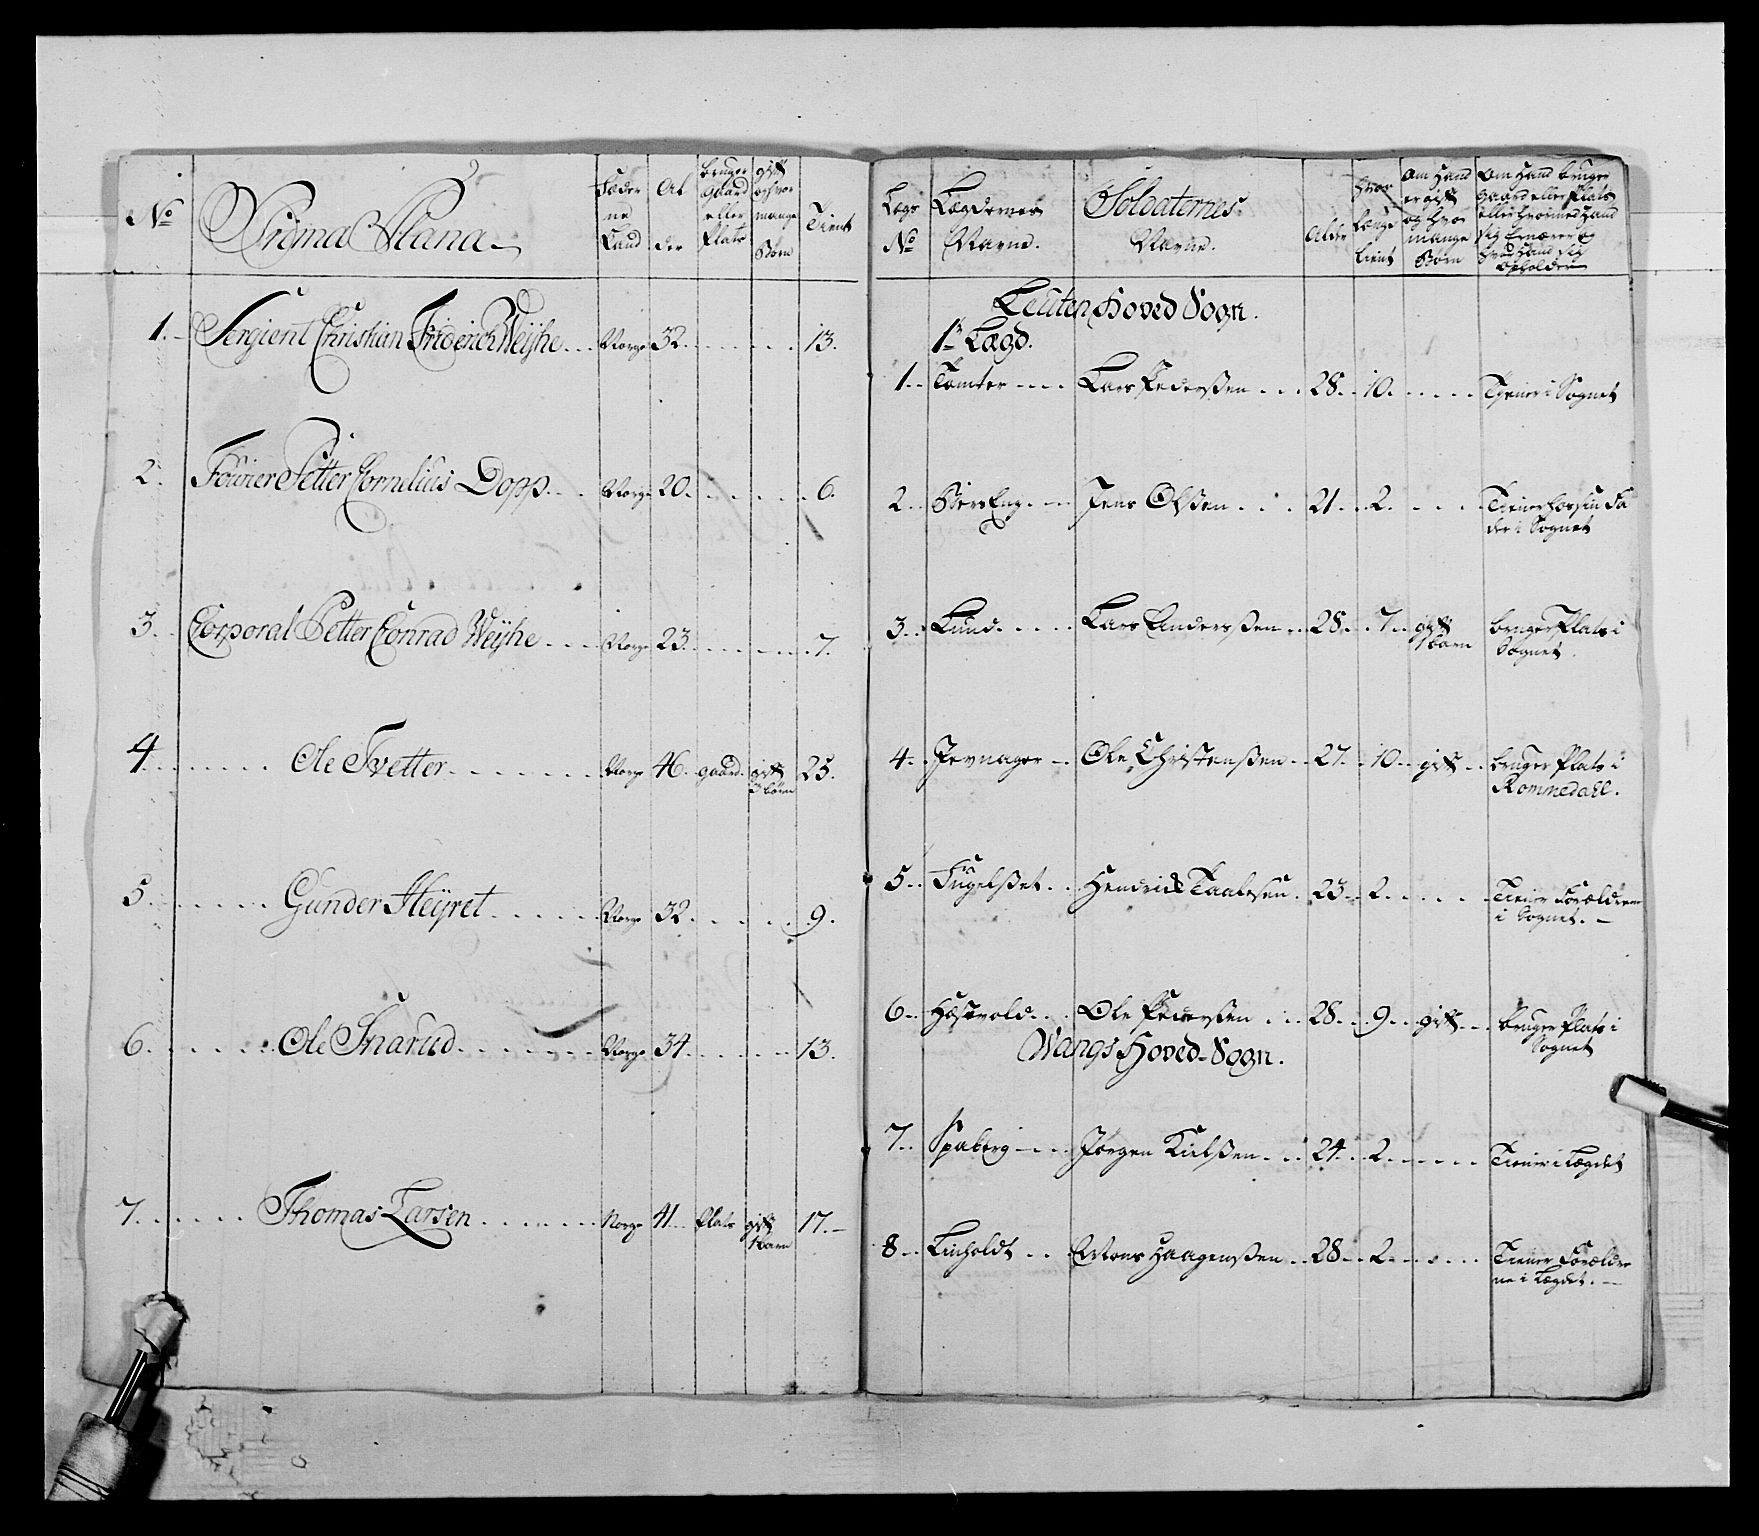 No
Prima Plana
Fæder
ne
Land
Al
der
bruger
gaard
eller
Plats
gift
og hvor
mange
Børn
Tient
1. Sergient Christian Friderich Weÿhe Norge 32. 13.
2. Fourier Petter Cornelius Dopp Norge 20. 6.
3. Corporal Petter Conrad Weÿhe Norge 23. 7.
4. Ole Tvetter Norge 46. gaard. gift 25.
3 børn
5. Gunder Heÿret Norge 32. 9.
6. Ole Snarud Norge 34. 13.
7. Thomas Larsen Norge 41. Plats gift 17.
1 barn
Lægs
No
Lægdernes
Navne.
Soldaternes
Navne.
Alder
hvor
længe
tient
Om Hand
er gift
og hvor
mange
Børn
Om Hand bruger
gaard eller Plats
eller hvormed Hand
sig Ernærer og
hvor Hand sig
opholder
Leuten Hoved Sogn.
1te Lægd.
1. Tomter Lars Pederßen 28. 10. Tiener i Sognet
2. BiersEng Jens Olßen 21. 2. Tiener hos sin Fa
der i Sognet
3. Lund Lars Anderßen 28. 7. gift bruger Plats i
1 barn Sognet.
4. Jevnager Ole Christenßen 27. 10. gift bruger Plats i
Rommedahl.
5. Fugelßet Hendrick Taalesen 23. 2. Tiener Forældrene
i Sognet.
6. Hosevold Ole Pederßen 28. 9. gift bruger Plats i
Sognet
Wangs Hoved-Sogn.
7. Spaberg Jørgen Nielßen 24. 2. Tiener i Lægdet
8. Linholdt Mons Haagenßen 28. 2. Tiener Forældre
ne i Lægdet.